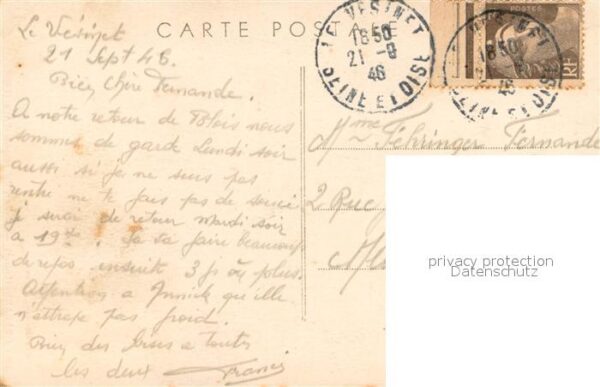 CARTE POSTALE
LE VESINET
18 50
21 -9
46
SEINE ET OISE
LE VESINET
18 50
46
SEINE ET OISE
POSTES
RF
Le Vésinet
21 Sept 46
Bien Chère Fernande.
A notre retour de Blois nous
sommes de garde Lundi soir
aussi si je ne suis pas
rentré ne te fais pas de soucis
je serai de retour mardi soir
a 19h. Sa va faire beaucoup
de repos ensuite 3 js ou plus.
Attention a Annick qu'ille
n'attrape pas froid.
Bien des bises a toute
les deux Francis
Mme Fehringer Fernande
2 Rue
privacy protection
Datenschutz